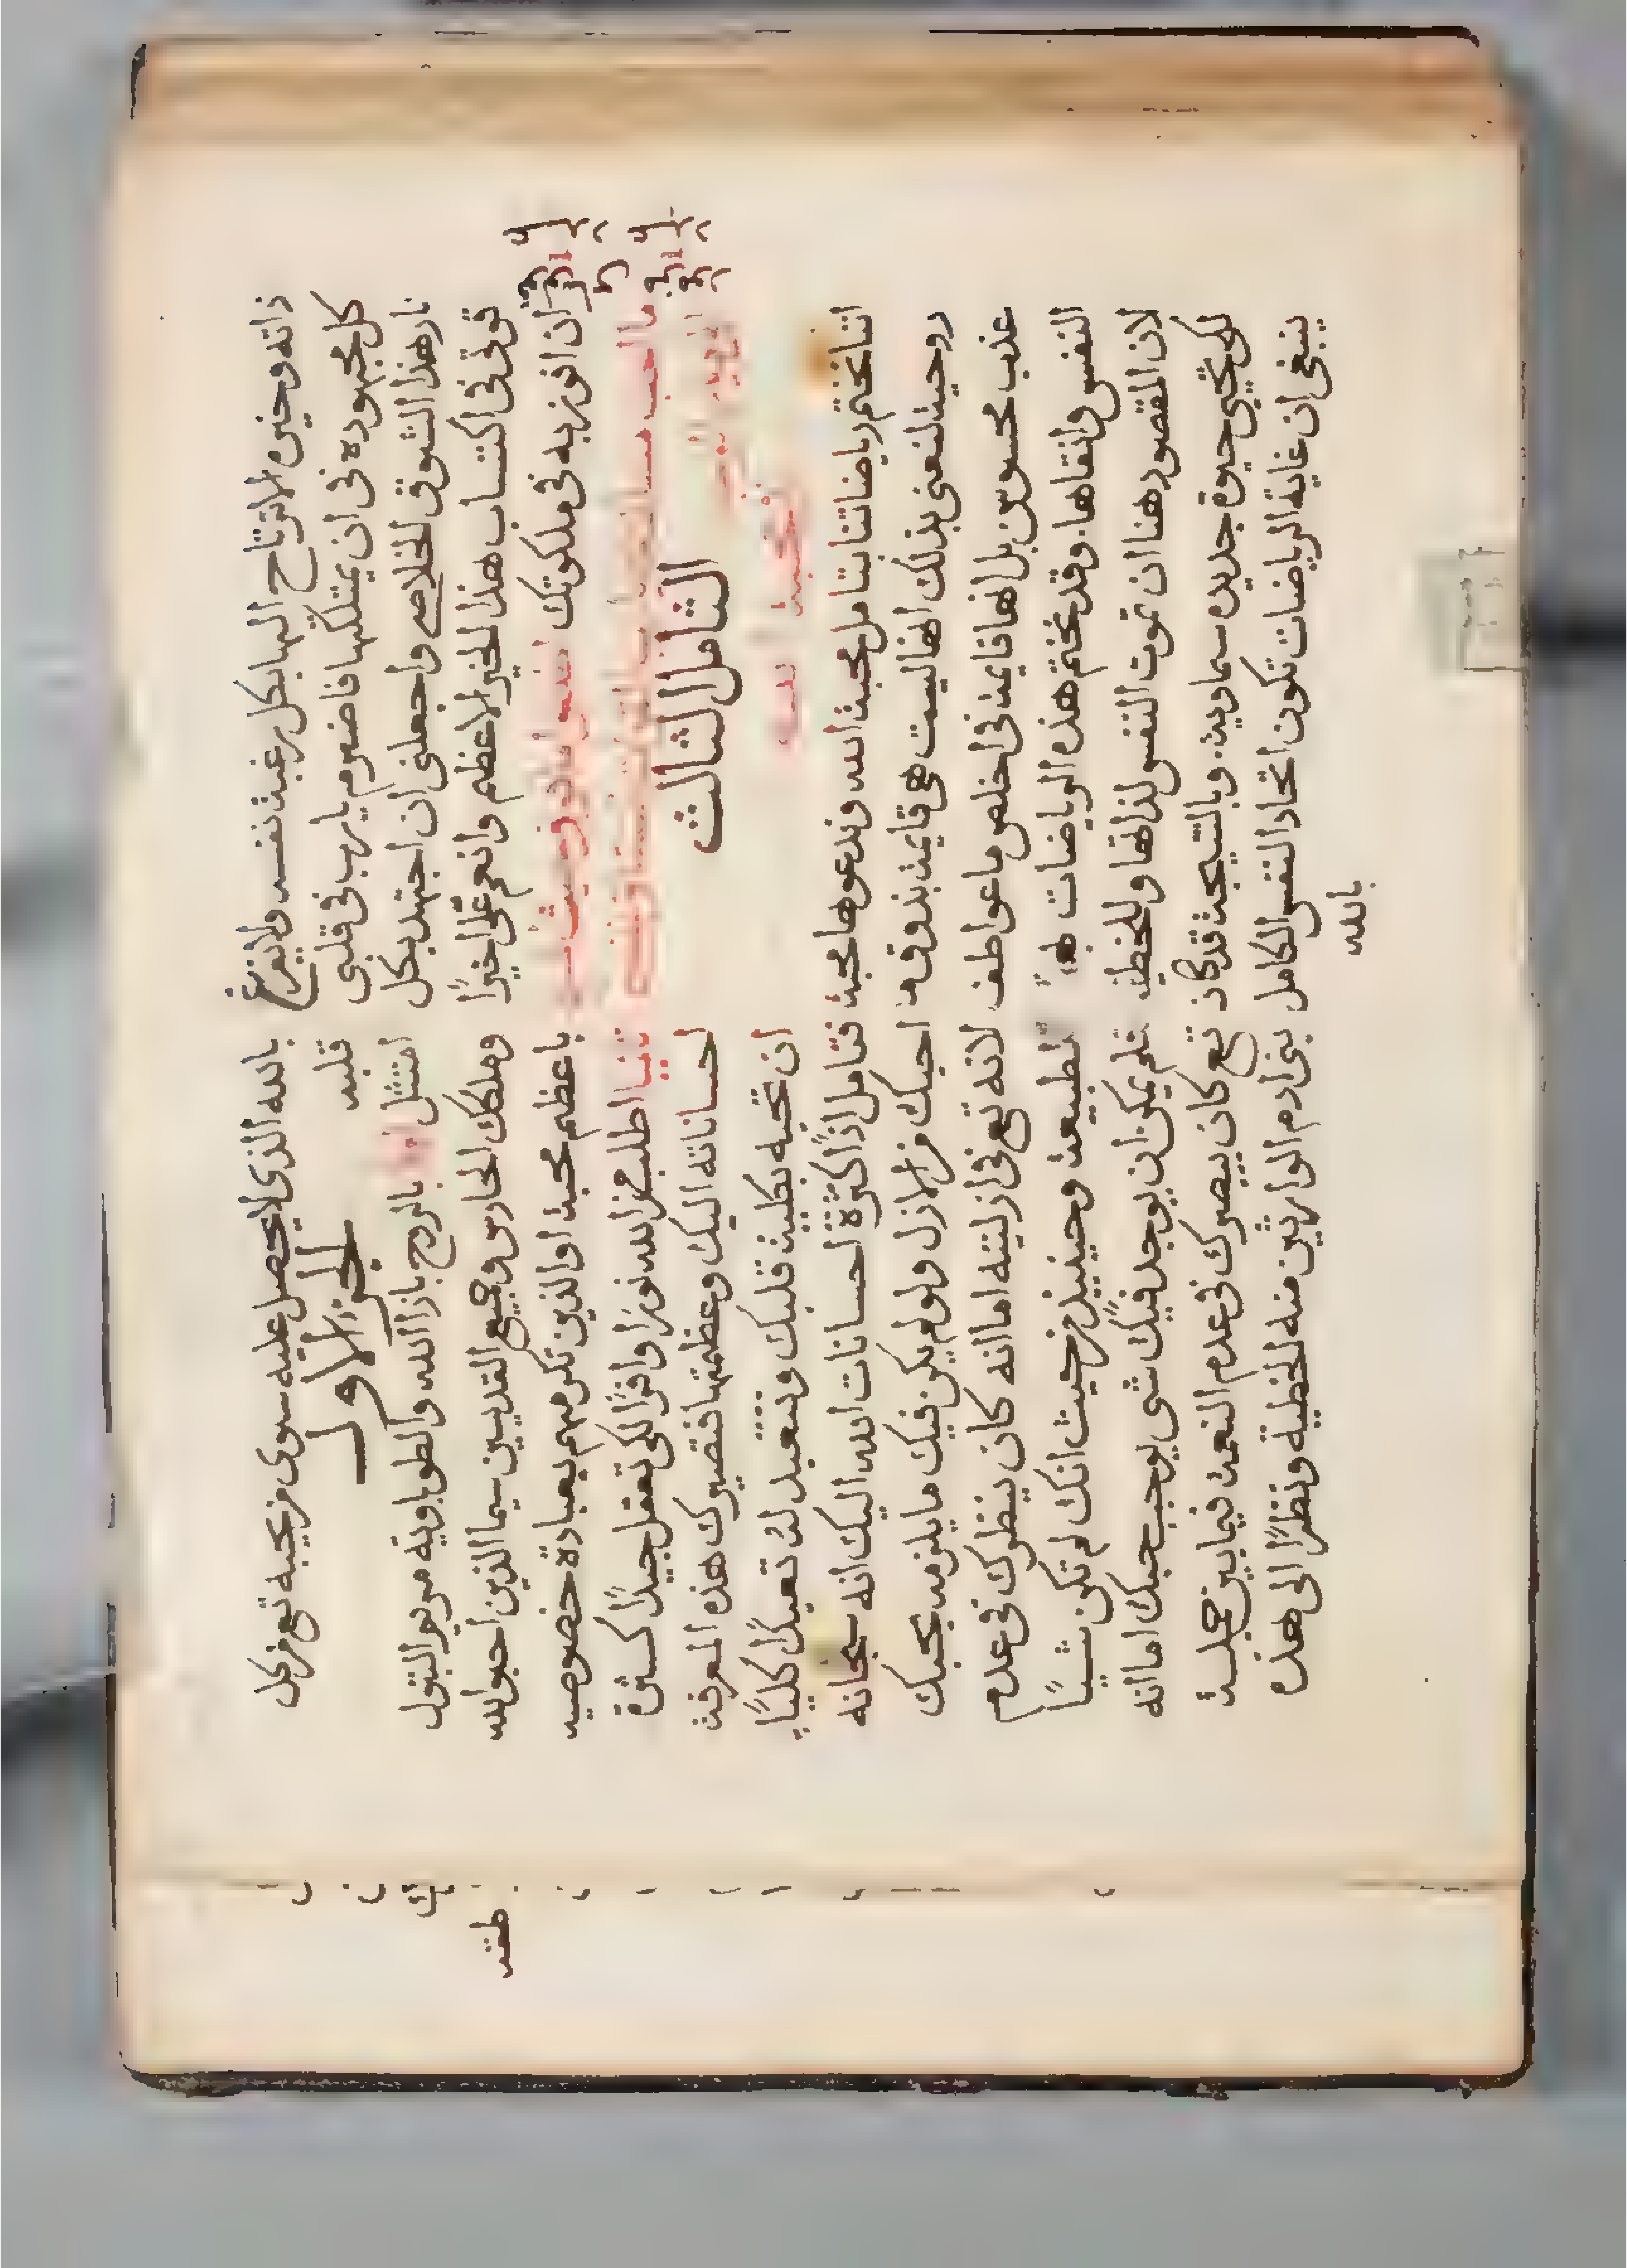 ذاته وخيره الارتاح اليها بكل رغبة نفسه ولا يفرغ
كل مجهوده في ان يمتلكها فاضرم يا رب في قلبي
نار هذا الشوق الخلاصي واجعلني ان اجتهد بكل
قوتي في اكتساب هذا الخير الاعظم وانعم علي اخيرًا
ان افوز به في ملكوتك
التامل الثالث
اننا نختم رياضاتنا بتامل محبة الله وندعوها محبة
روحية لنعني بذلك انها ليست هي قايمة بذوق ما
عذب محسوس بل انها قايمة في اخلص ما عواطف
النفس وانقاها. وقد نختم هذه الرياضات
لان المقصود هنا ان تموت النفس لذاتها وللخطية
لكي تحيي حيوة جديده سماوية. وبالنتيجة قد كان
ينبغي ان غاية الرياضات تكون اتحاد النفس الكامل
بالله
بالله الذي لا يحصل عليه سوى من يحبه تع من كل
قلبه
الجزء الاول
امتثل بالروح بازا الله والطوباوية مريم البتول
وملكك الحارس وجميع القديسين سيما الذين احبوا الله
باعظم محبة او الذين تكرمهم بعبادة خصوصية
ثانيا اطلب من الله نورا وافرًا لكي تعقل جيدًا كثرة
احساناته اليك وعظمتها فتصيرك هذه المعرفة
ان تحبه بكلية قلبك وتتعبد له تعبدًا كليًا.
فتامل اذًا كثرة احسانات الله اليك انه سبحانه
احبك من الازل ولو لم يكن فيك ما يلزمه بحبك
لانه تع في ازليته اما انه كان ينظرك في عدم
الطبيعة وحينيذٍ من حيث انك لم تكن شيئًا
فلم يمكن ان يوجد فيك شي يوجب حبك اما انه
تع كان يبصرك في عدم النعمة فيما بين جملة
بني ادم الوارثين منه الخطية ونظرًا الى هذه